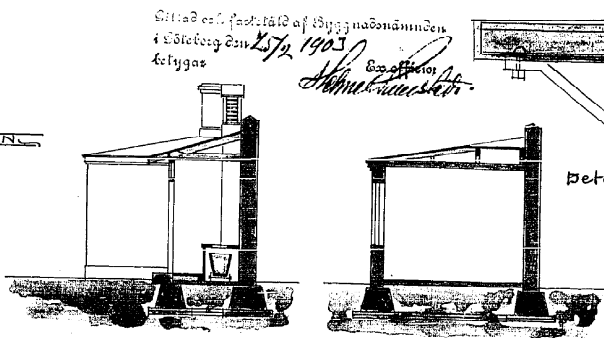 Gillad och fastställd af Byggnadsnämnden
i Göteborg den 25/2 1903
betygar
Ex officio:
Det